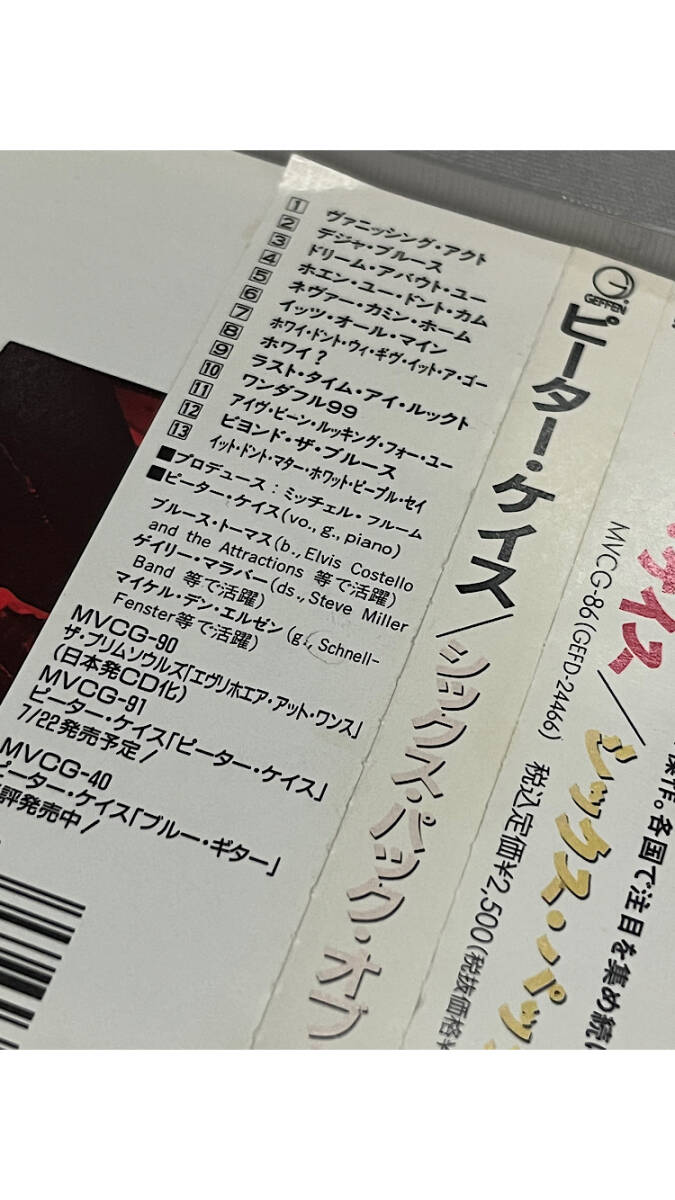 1 ヴァニッシング・アクト
2 デジャ・ブルース
3 ドリーム・アバウト・ユー
4 ホエン・ユー・ドント・カム
5 ネヴァー・カミン・ホーム
6 イッツ・オール・マイン
7 ホワイ・ドント・ウィ・ギヴ・イット・ア・ゴー
8 ホワイ?
9 ラスト・タイム・アイ・ルックト
10 ワンダフル99
11 アイヴ・ビーン・ルッキング・フォー・ユー
12 ビヨンド・ザ・ブルース
13 イット・ドント・マター・ホワット・ピープル・セイ
■プロデュース:ミッチェル・フルーム
■ピーター・ケイス(vo., g., piano)
ブルース・トーマス(b., Elvis Costello
and the Attractions 等で活躍)
ゲイリー・マラバー(ds., Steve Miller
Band 等で活躍)
マイケル・デン・エルゼン(g., Schnell-
Fenster等で活躍)
MVCG-90
ザ・プリムソウルズ「エヴリホエア・アット・ワンス」
(日本発CD化)
MVCG-91
ピーター・ケイス「ピーター・ケイス」
7/22発売予定/
MVCG-40
ピーター・ケイス「ブルー・ギター」
評発売中/
GEFFEN
ピーター・ケイス/シックス・パック・オブ
ケイス/シックス・パッ
MVCG-86(GEFD-24466) 税込定価¥2,500(税抜価格¥
作。各国で注目を集め続け